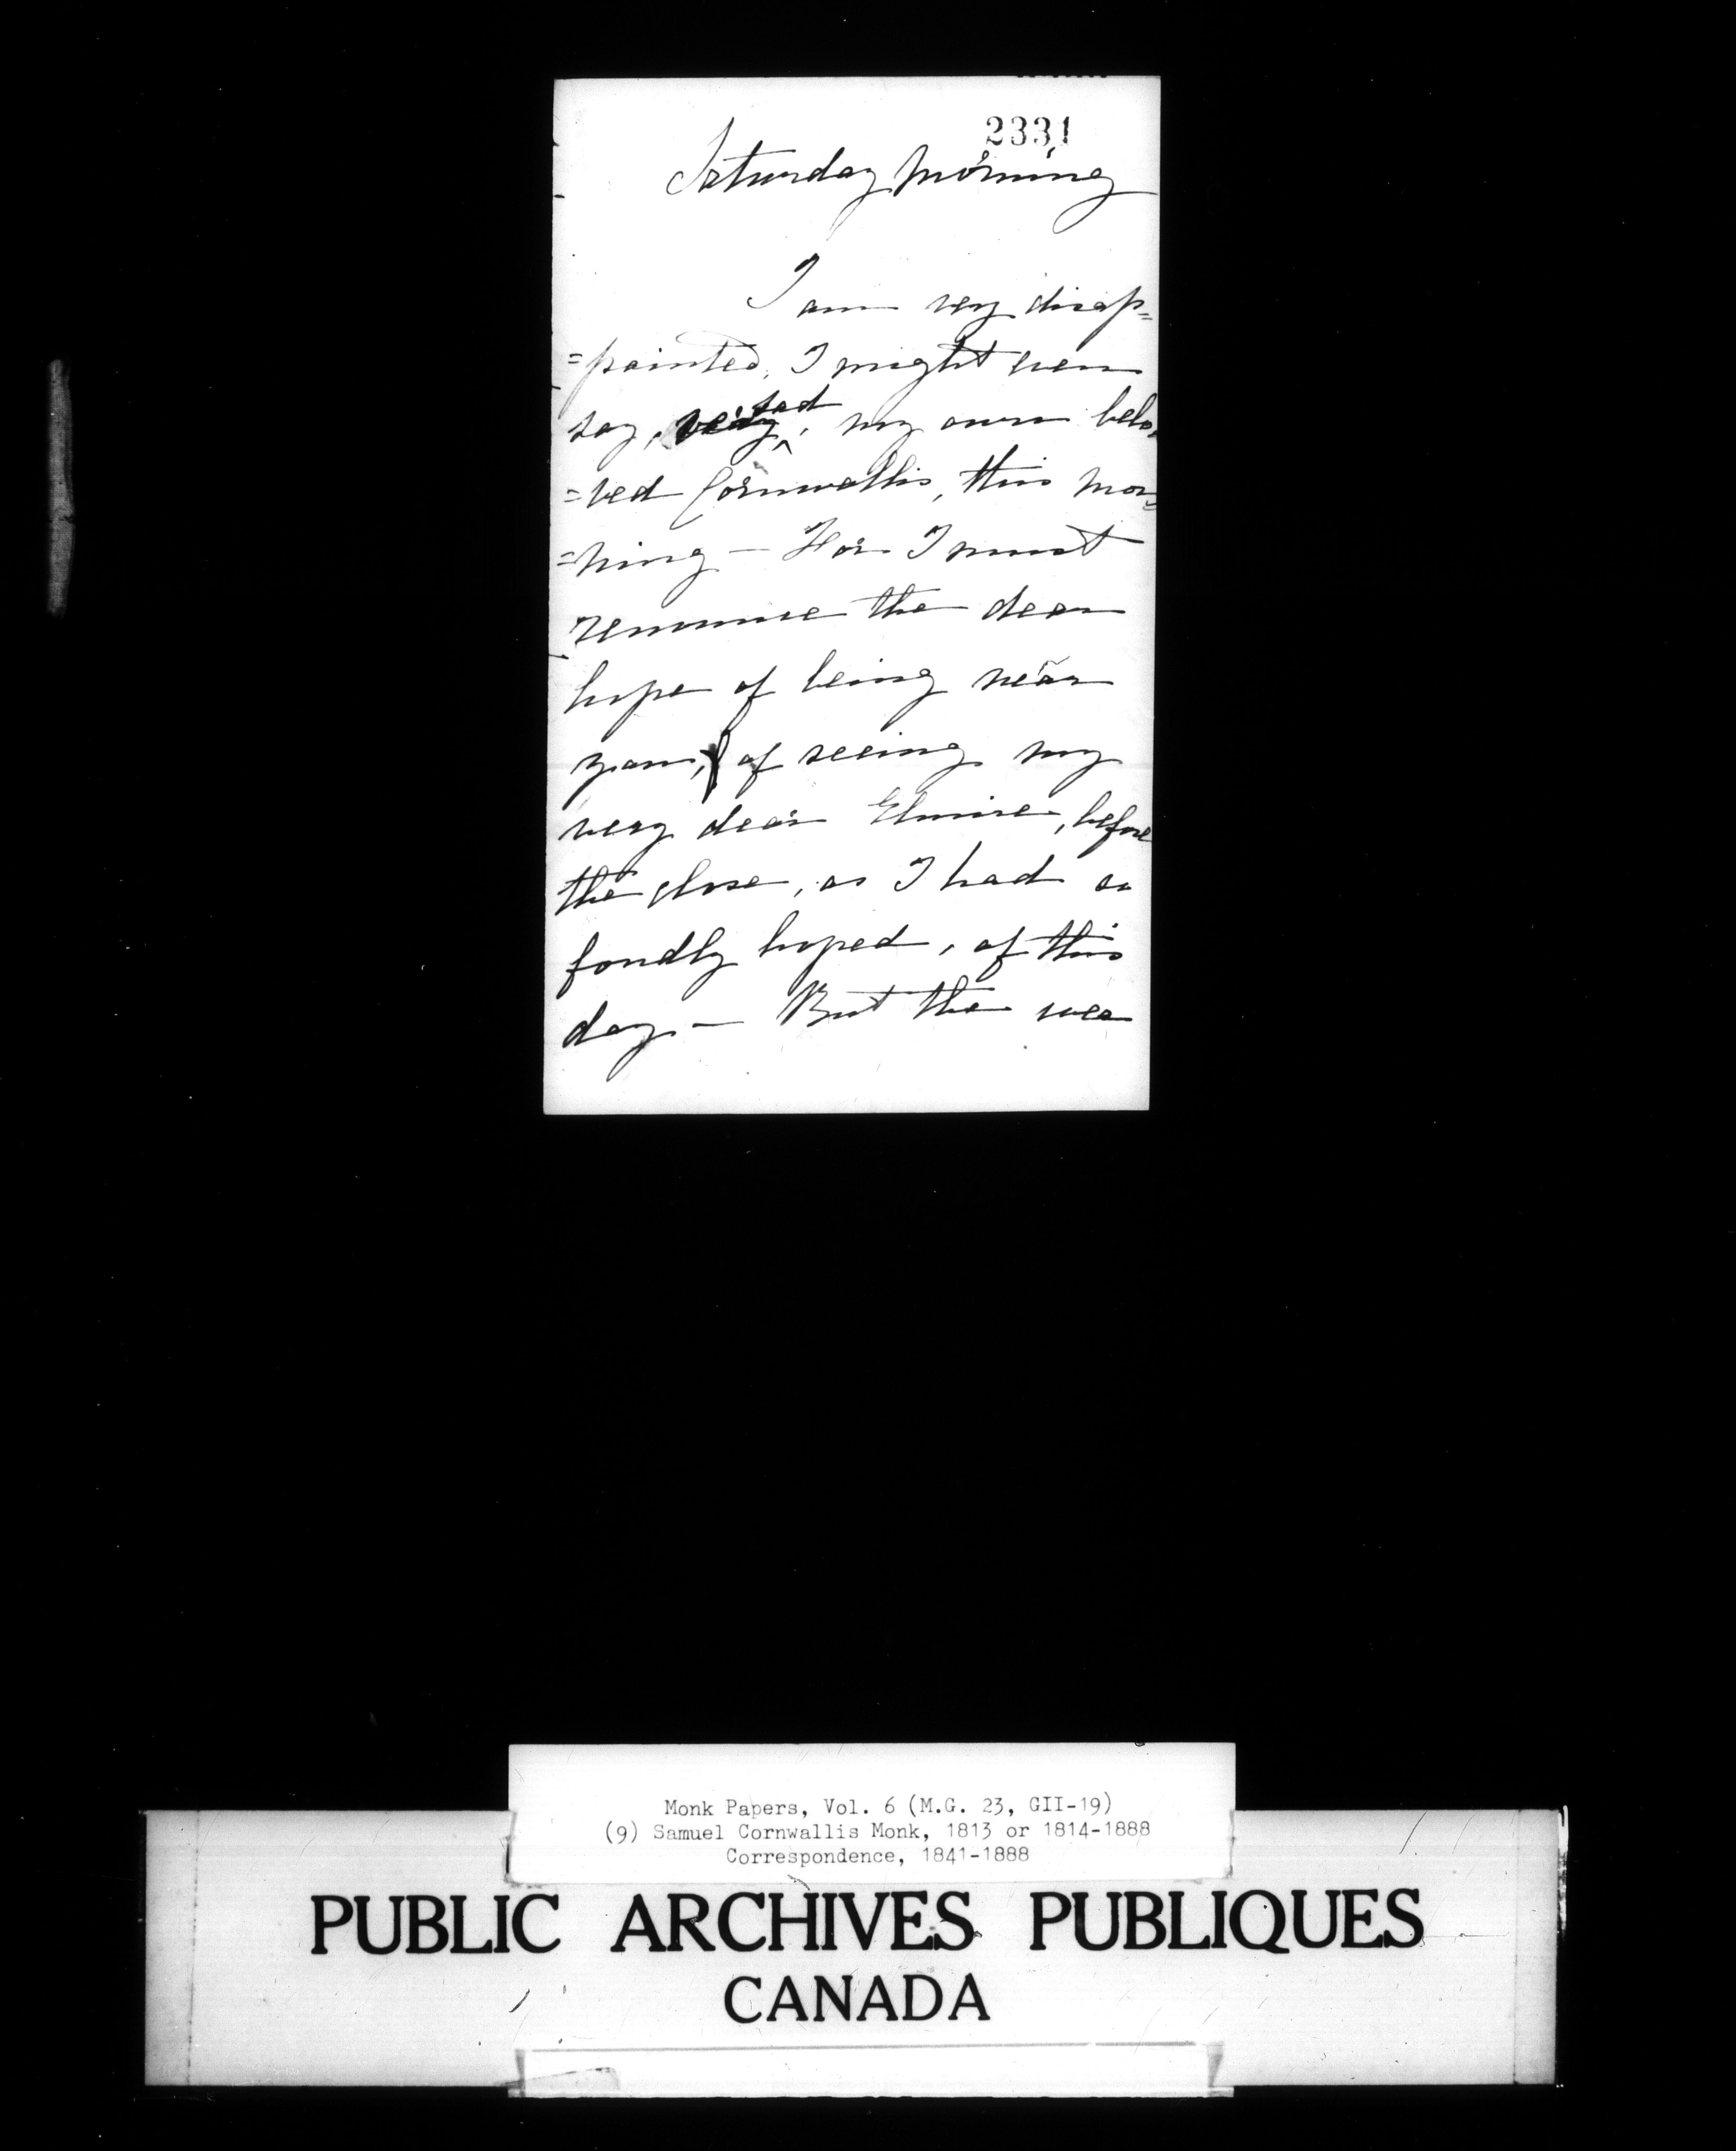 2331
Saturday morning
I am very disap=
=pointed, I might even
say, very sad, my own belo=
=ved Cornwallis, this mor=
=ning — For I must
renounce the dear
hope of being near
you, & of seeing my
very dear Elmire, before
the close, as I had so
fondly hoped, of this
day. — But the wea
Monk Papers, Vol. 6 (M.G. 23, GII-19)
(9) Samuel Cornwallis Monk, 1813 or 1814-1888
Correspondence, 1841-1888
PUBLIC ARCHIVES PUBLIQUES
CANADA